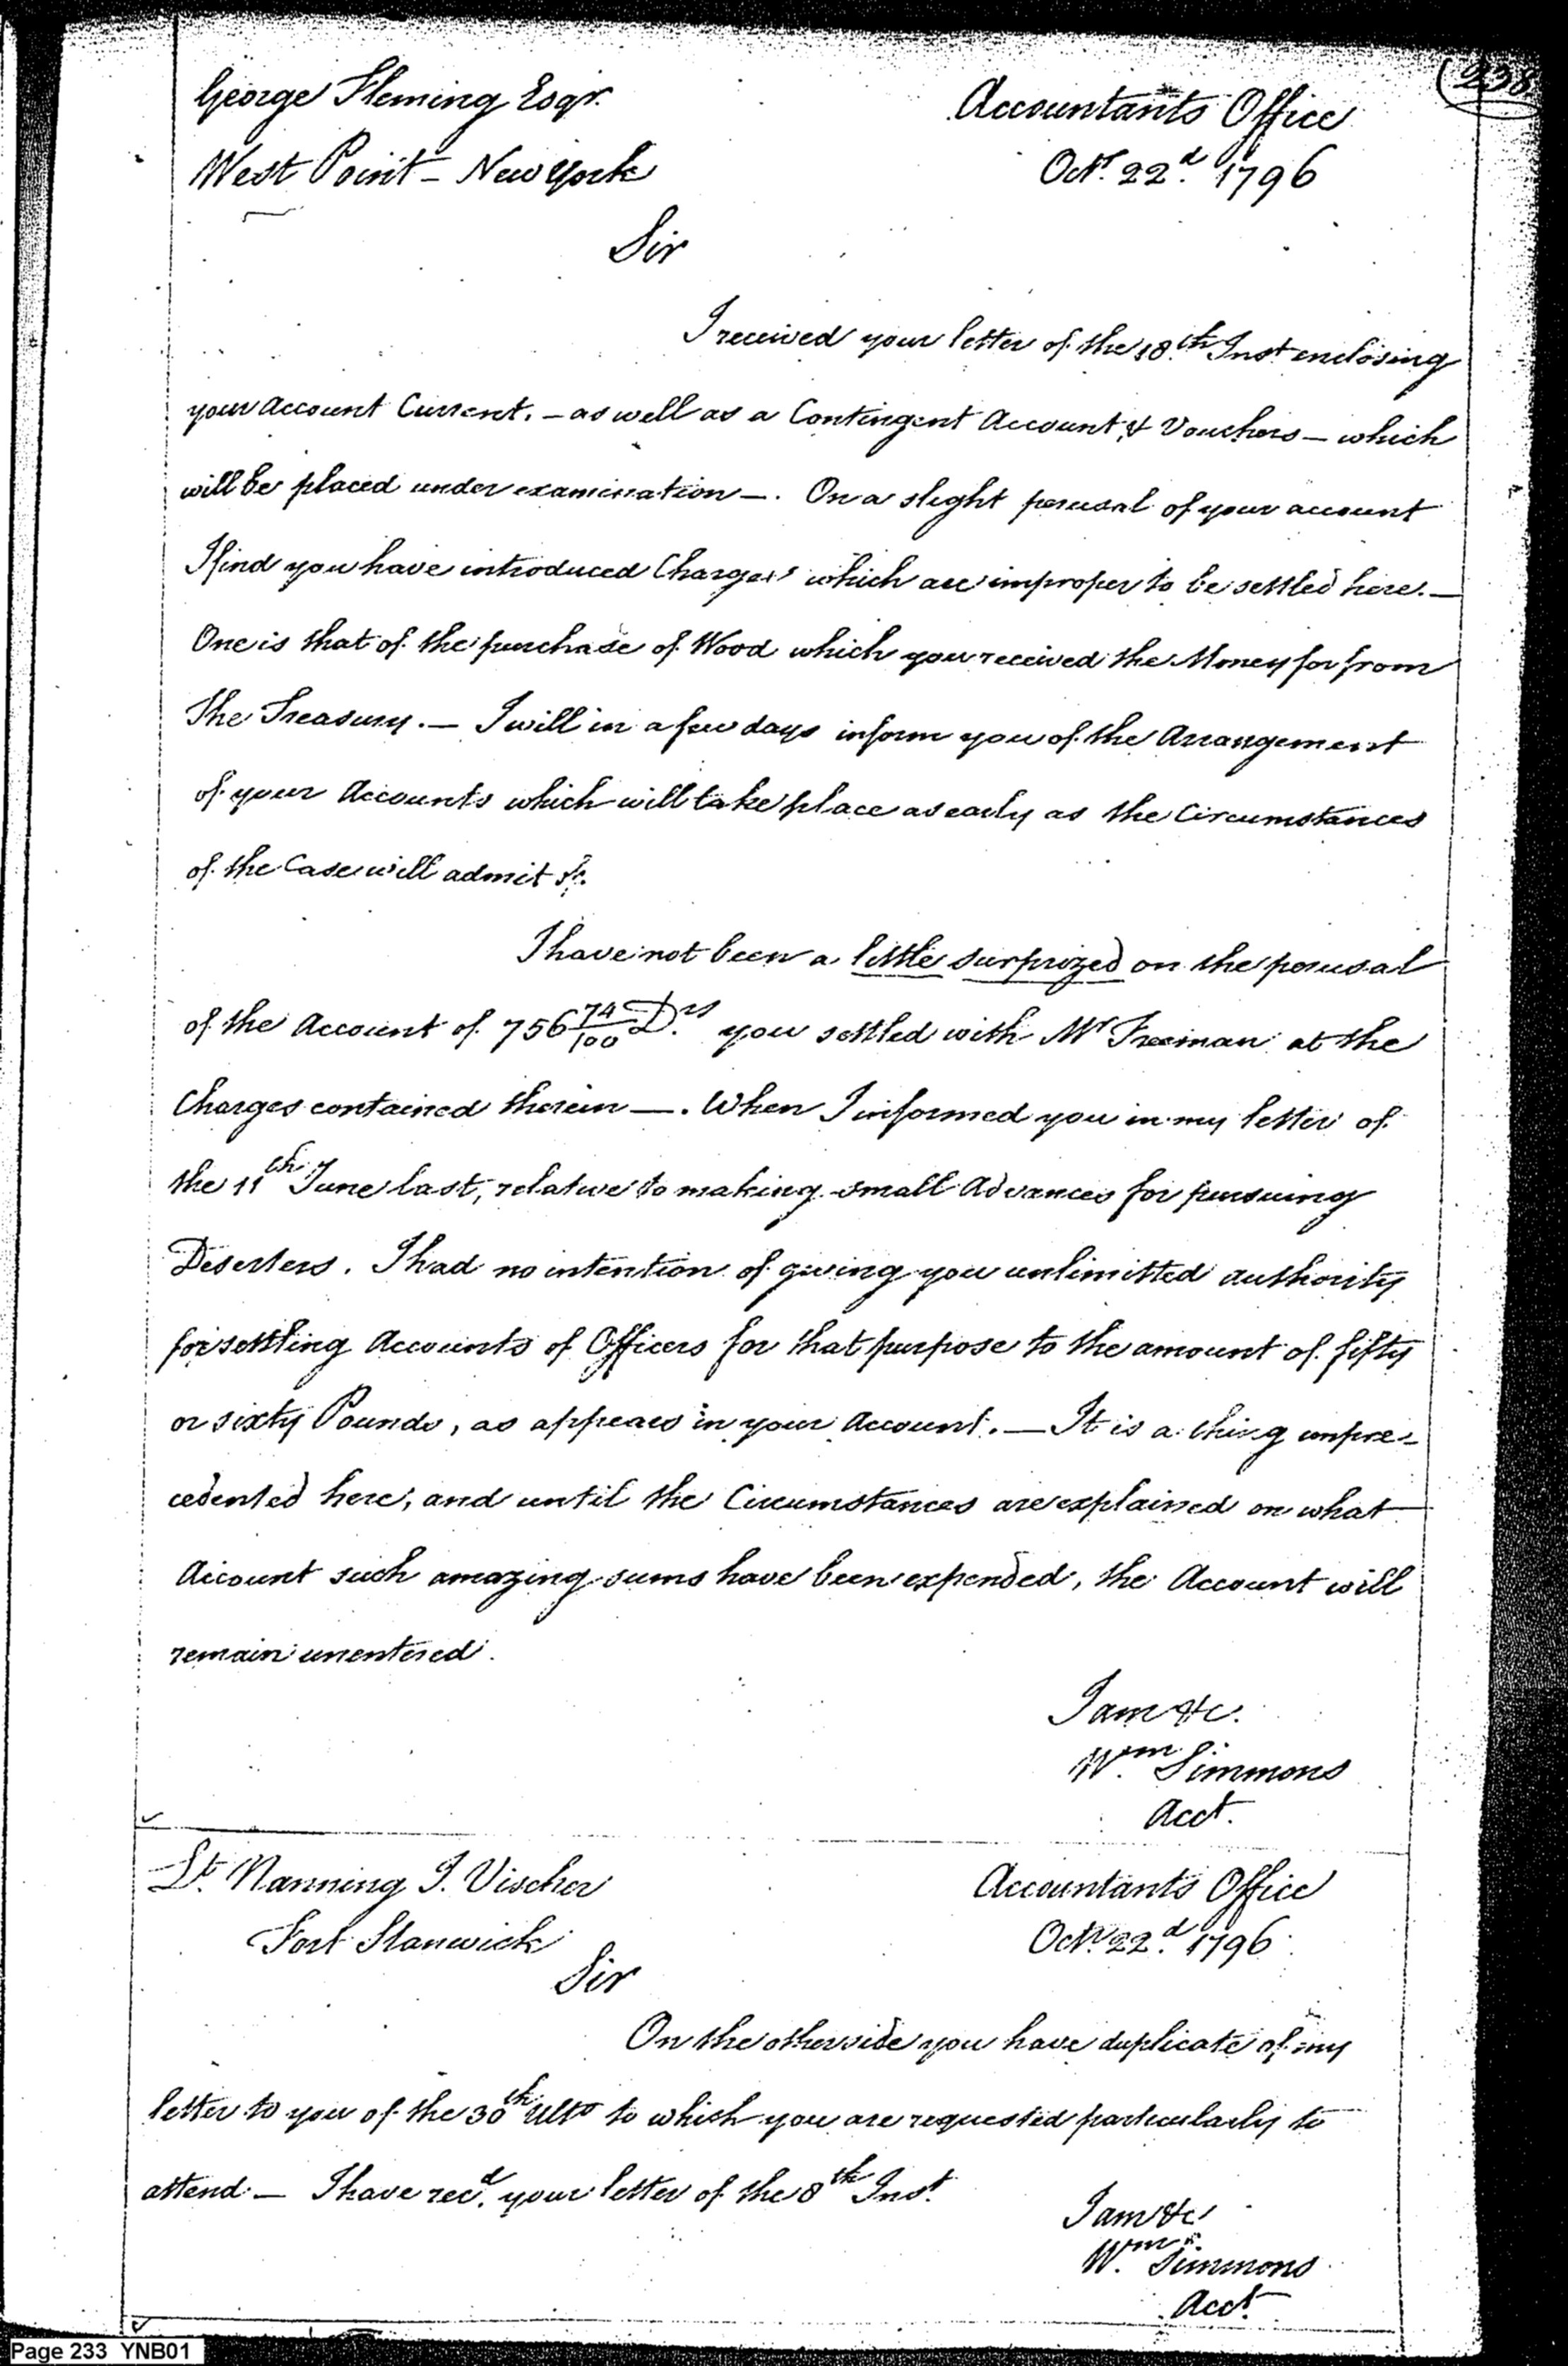 238
George Fleming Esqr.
Accountants Office
West Point - New York
Octr. 22d. 1796
Sir
I received your letter of the 18th Inst enclosing
your Account Current. - as well as a Contingent Account & Vouchers - which
will be placed under examination -. On a slight perusal of your account
I find you have introduced Charges which are improper to be settled here. -
One is that of the purchase of Wood which you received the Money for from
the Treasury. - I will in a few days inform you of the Arrangement
of your Accounts which will take place as early as the Circumstances
of the Case will admit
I have not been a little surprized on the perusal
of the Account of 756 74/100 Drs you settled with Mr Freeman at the
Charges contained therein -. When I informed you in my letter of
the 11th June last, relative to making small Advances for pursuing
Deserters. I had no intention of giving you unlimitted authority
for settling Accounts of Officers for that purpose to the amount of fifty
or sixty Pounds, as appears in your Account. - It is a thing unpre-
cedented here, and until the Circumstances are explained on what
Account such amazing sums have been expended, the Account will
remain unentered.
I am &c.
Wm. Simmons
Acct.
Lt. Nanning J. Vischer
Accountants Office
Fort Stanwick
Octr. 22d. 1796
Sir
On the other side you have duplicate of my
letter to you of the 30th Ulto to which you are requested particularly to
attend - I have recd. your letter of the 8th Inst.
I am &c
Wm. Simmons
Acct.
Page 233 YNB01